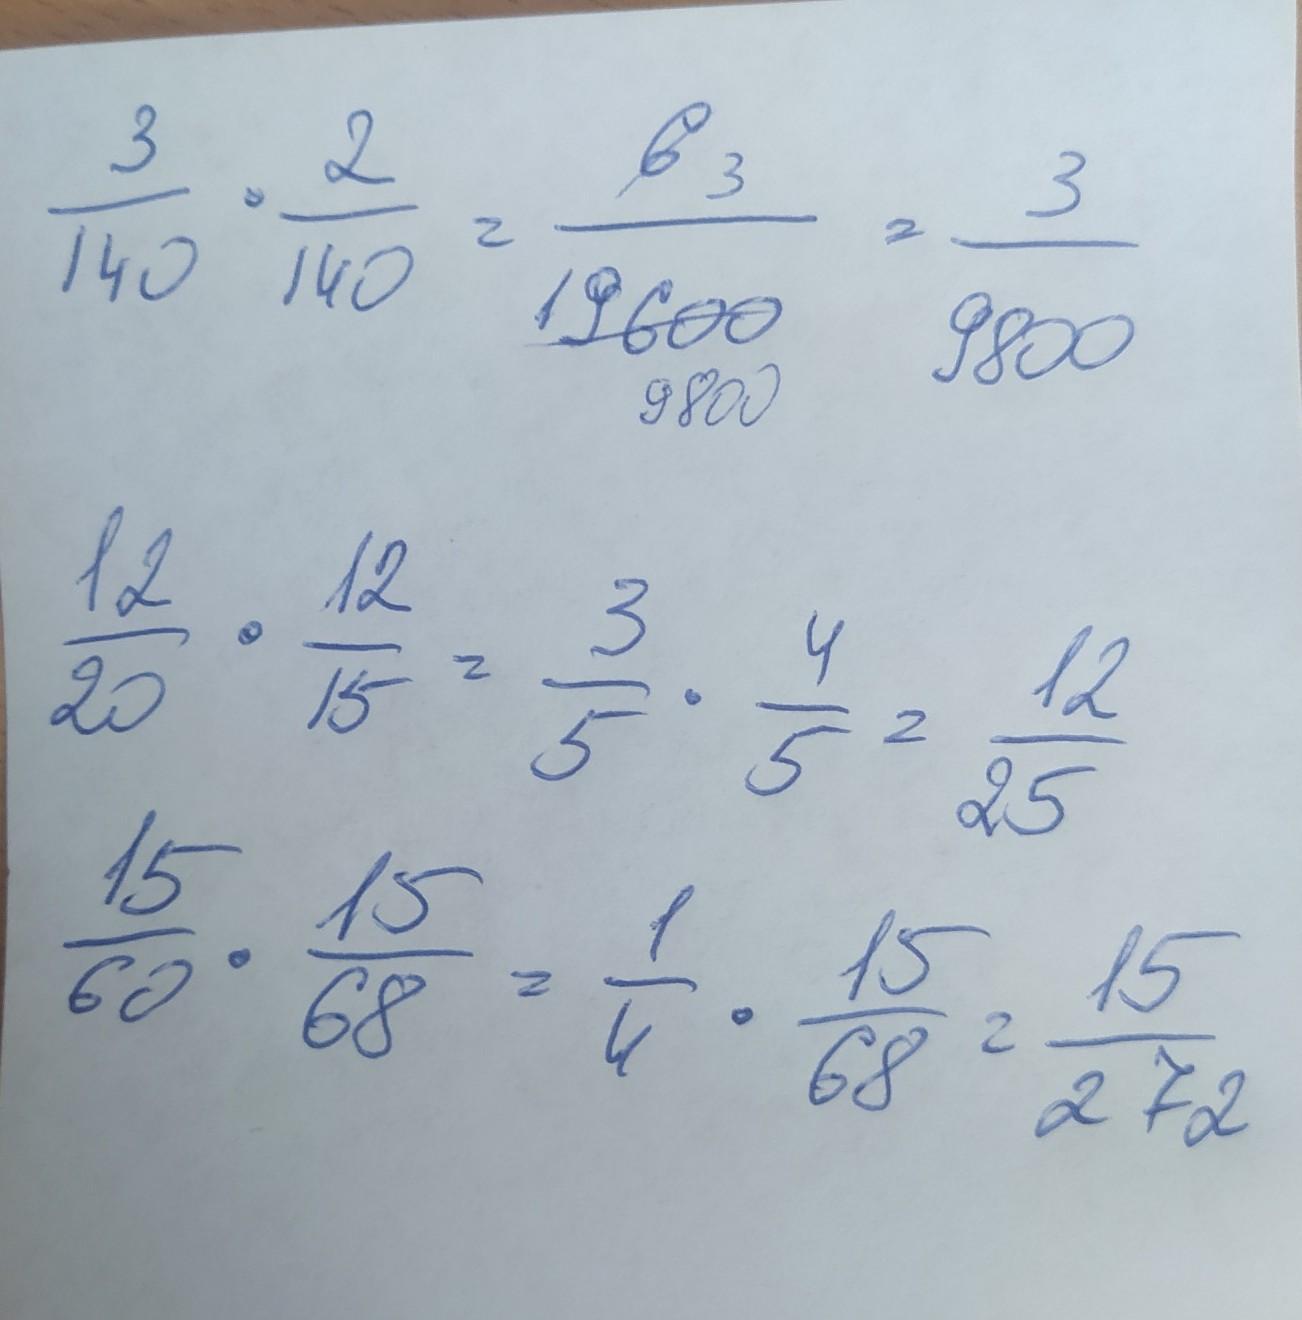 3/140 · 2/140 = 6 3/19600 9800 = 3/9800
12/20 · 12/15 = 3/5 · 4/5 = 12/25
15/60 · 15/68 = 1/4 · 15/68 = 15/272